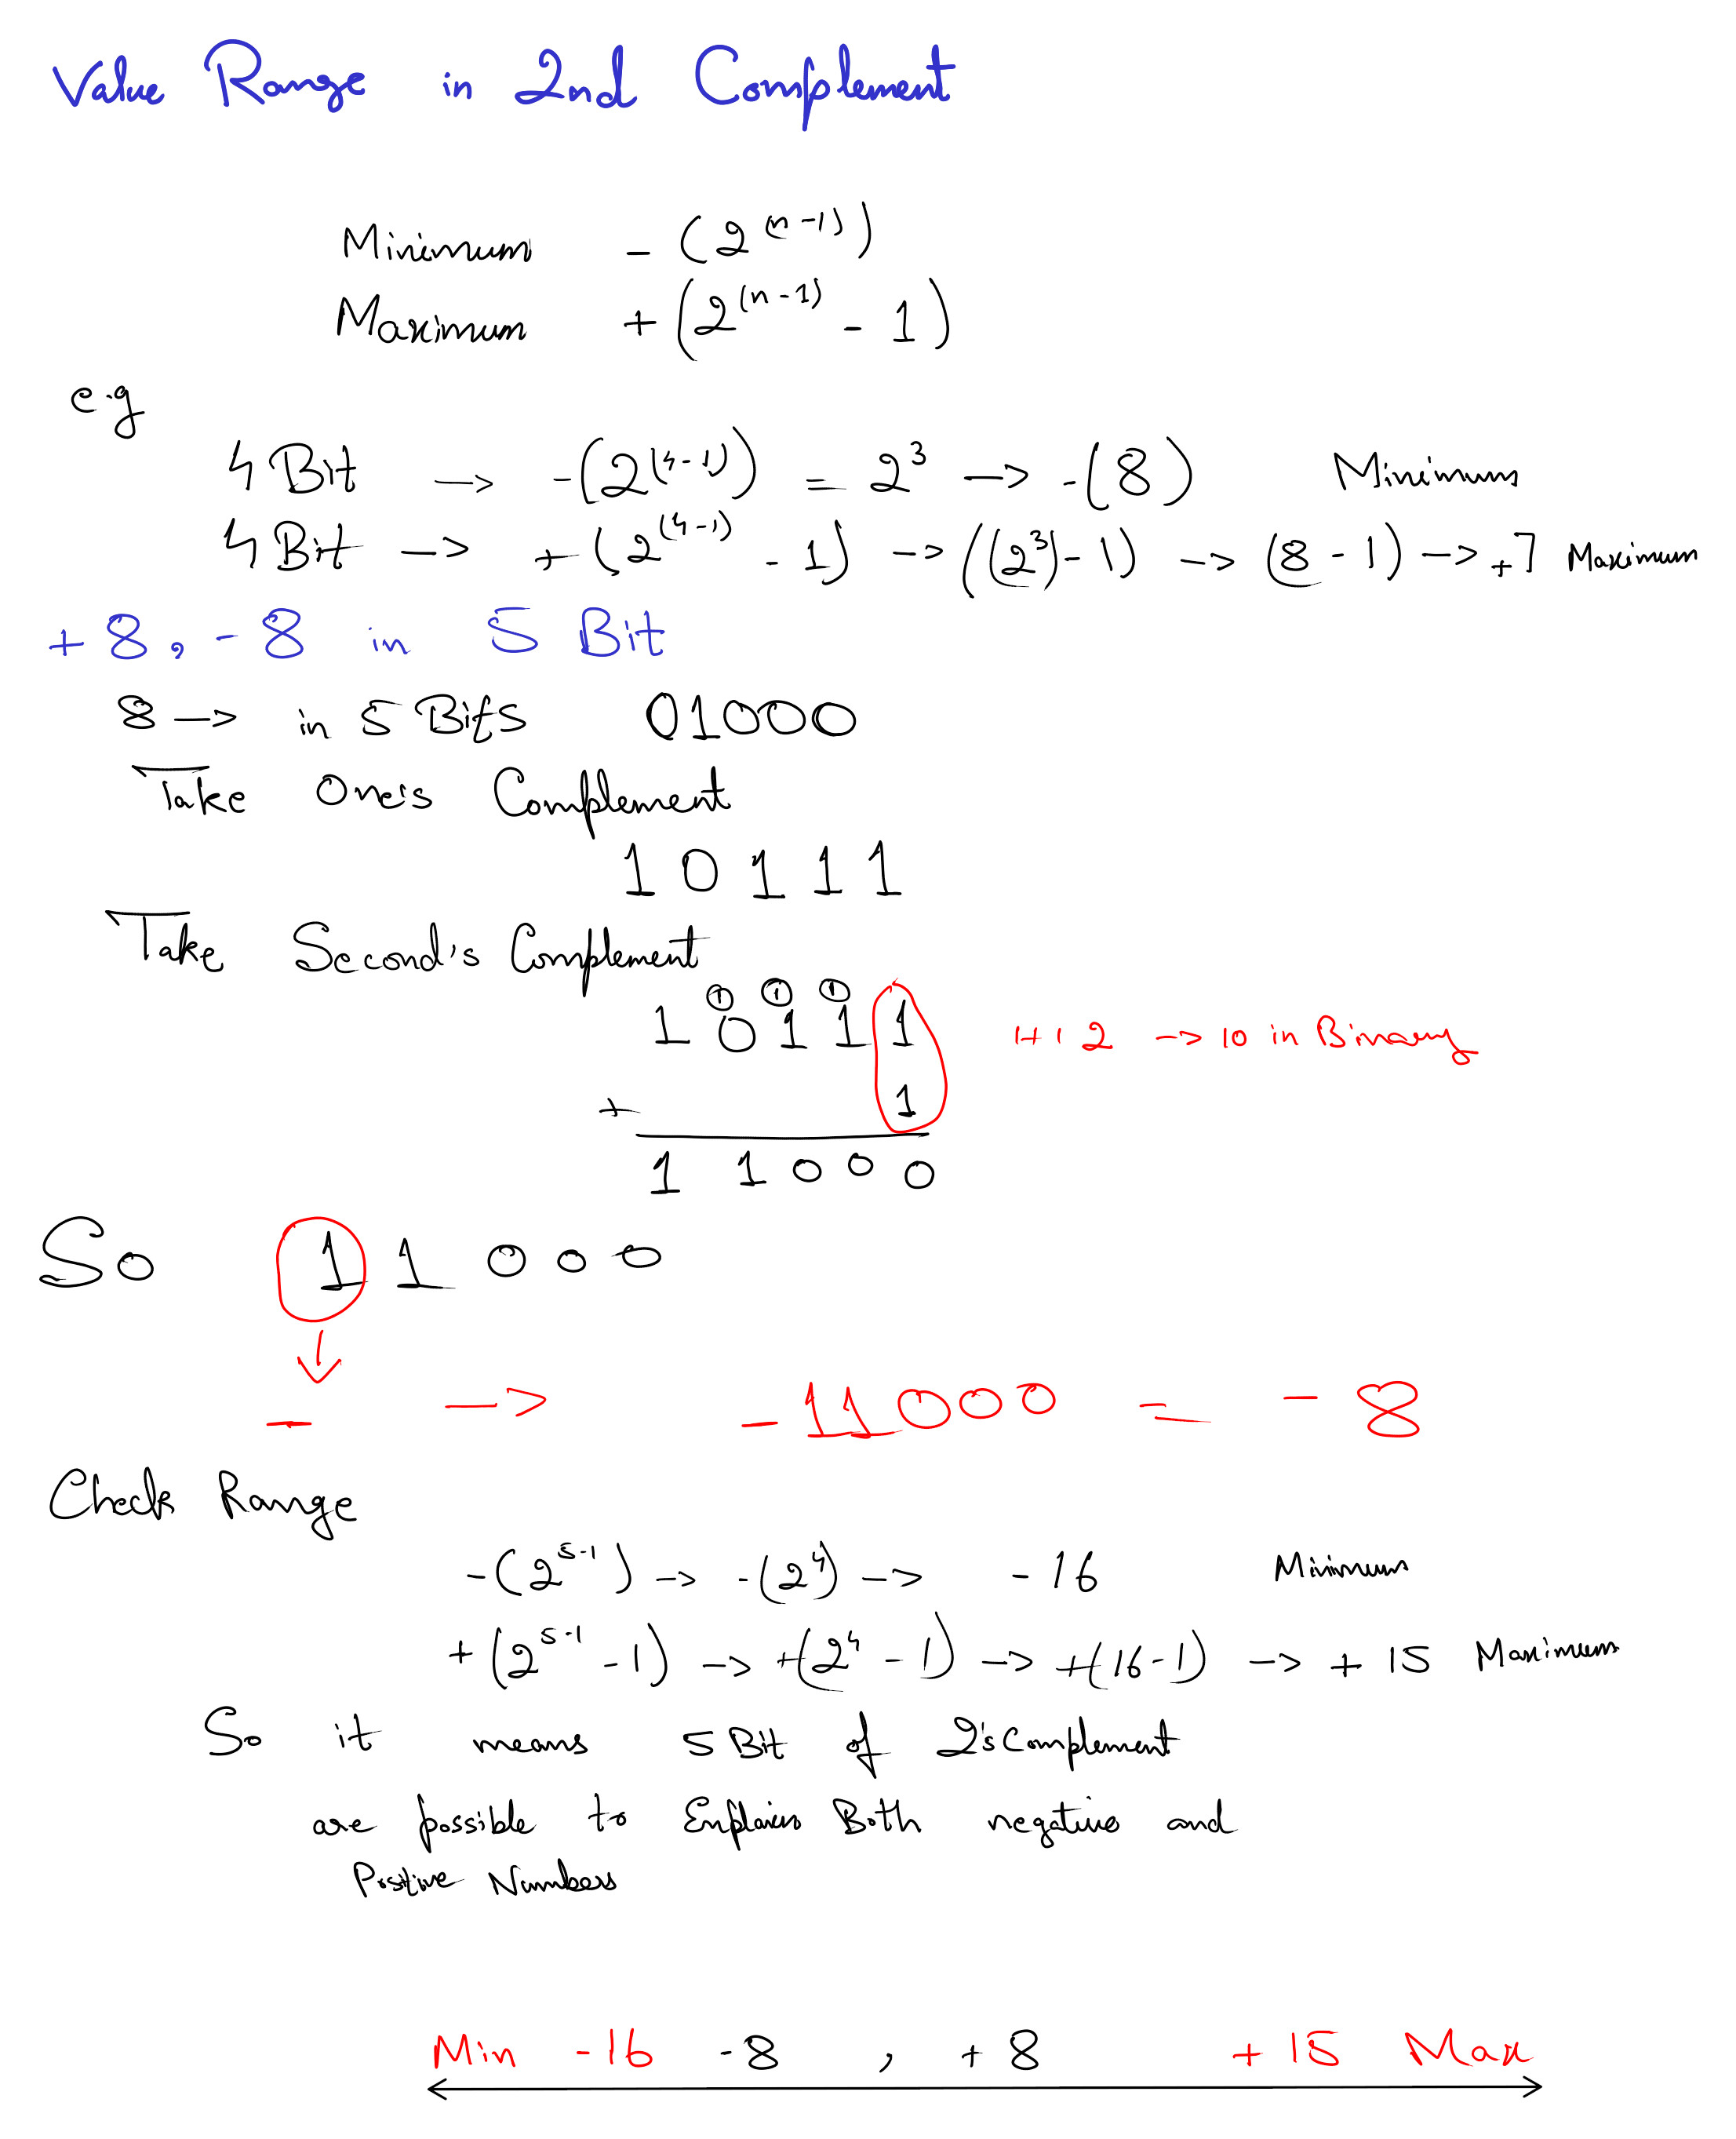 Value Range in 2nd Complement
Minimum - (2^(n-1))
Maximum + (2^(n-1) - 1)
e.g
4 Bit -> -(2^(4-1)) = 2^3 -> -(8) Minimum
4 Bit -> +(2^(4-1) - 1) -> ((2^3)-1) -> (8-1) -> +7 Maximum
+8, -8 in 5 Bit
8 -> in 5 Bits 01000
Take One's Complement
1 0 1 1 1
Take Second's Complement
1 1 1
1 0 1 1 1 1+1 2 -> 10 in Binary
+ 1
1 1 0 0 0
So 1 1 0 0 0
- -> -11000 = -8
Check Range
-(2^5-1) -> -(2^4) -> -16 Minimum
+(2^5-1 - 1) -> +(2^4 - 1) -> +(16-1) -> +15 Maximum
So it means 5 Bit of 2's Complement
are possible to Explain Both negative and
Positive Numbers
Min -16 -8 , +8 +15 Max